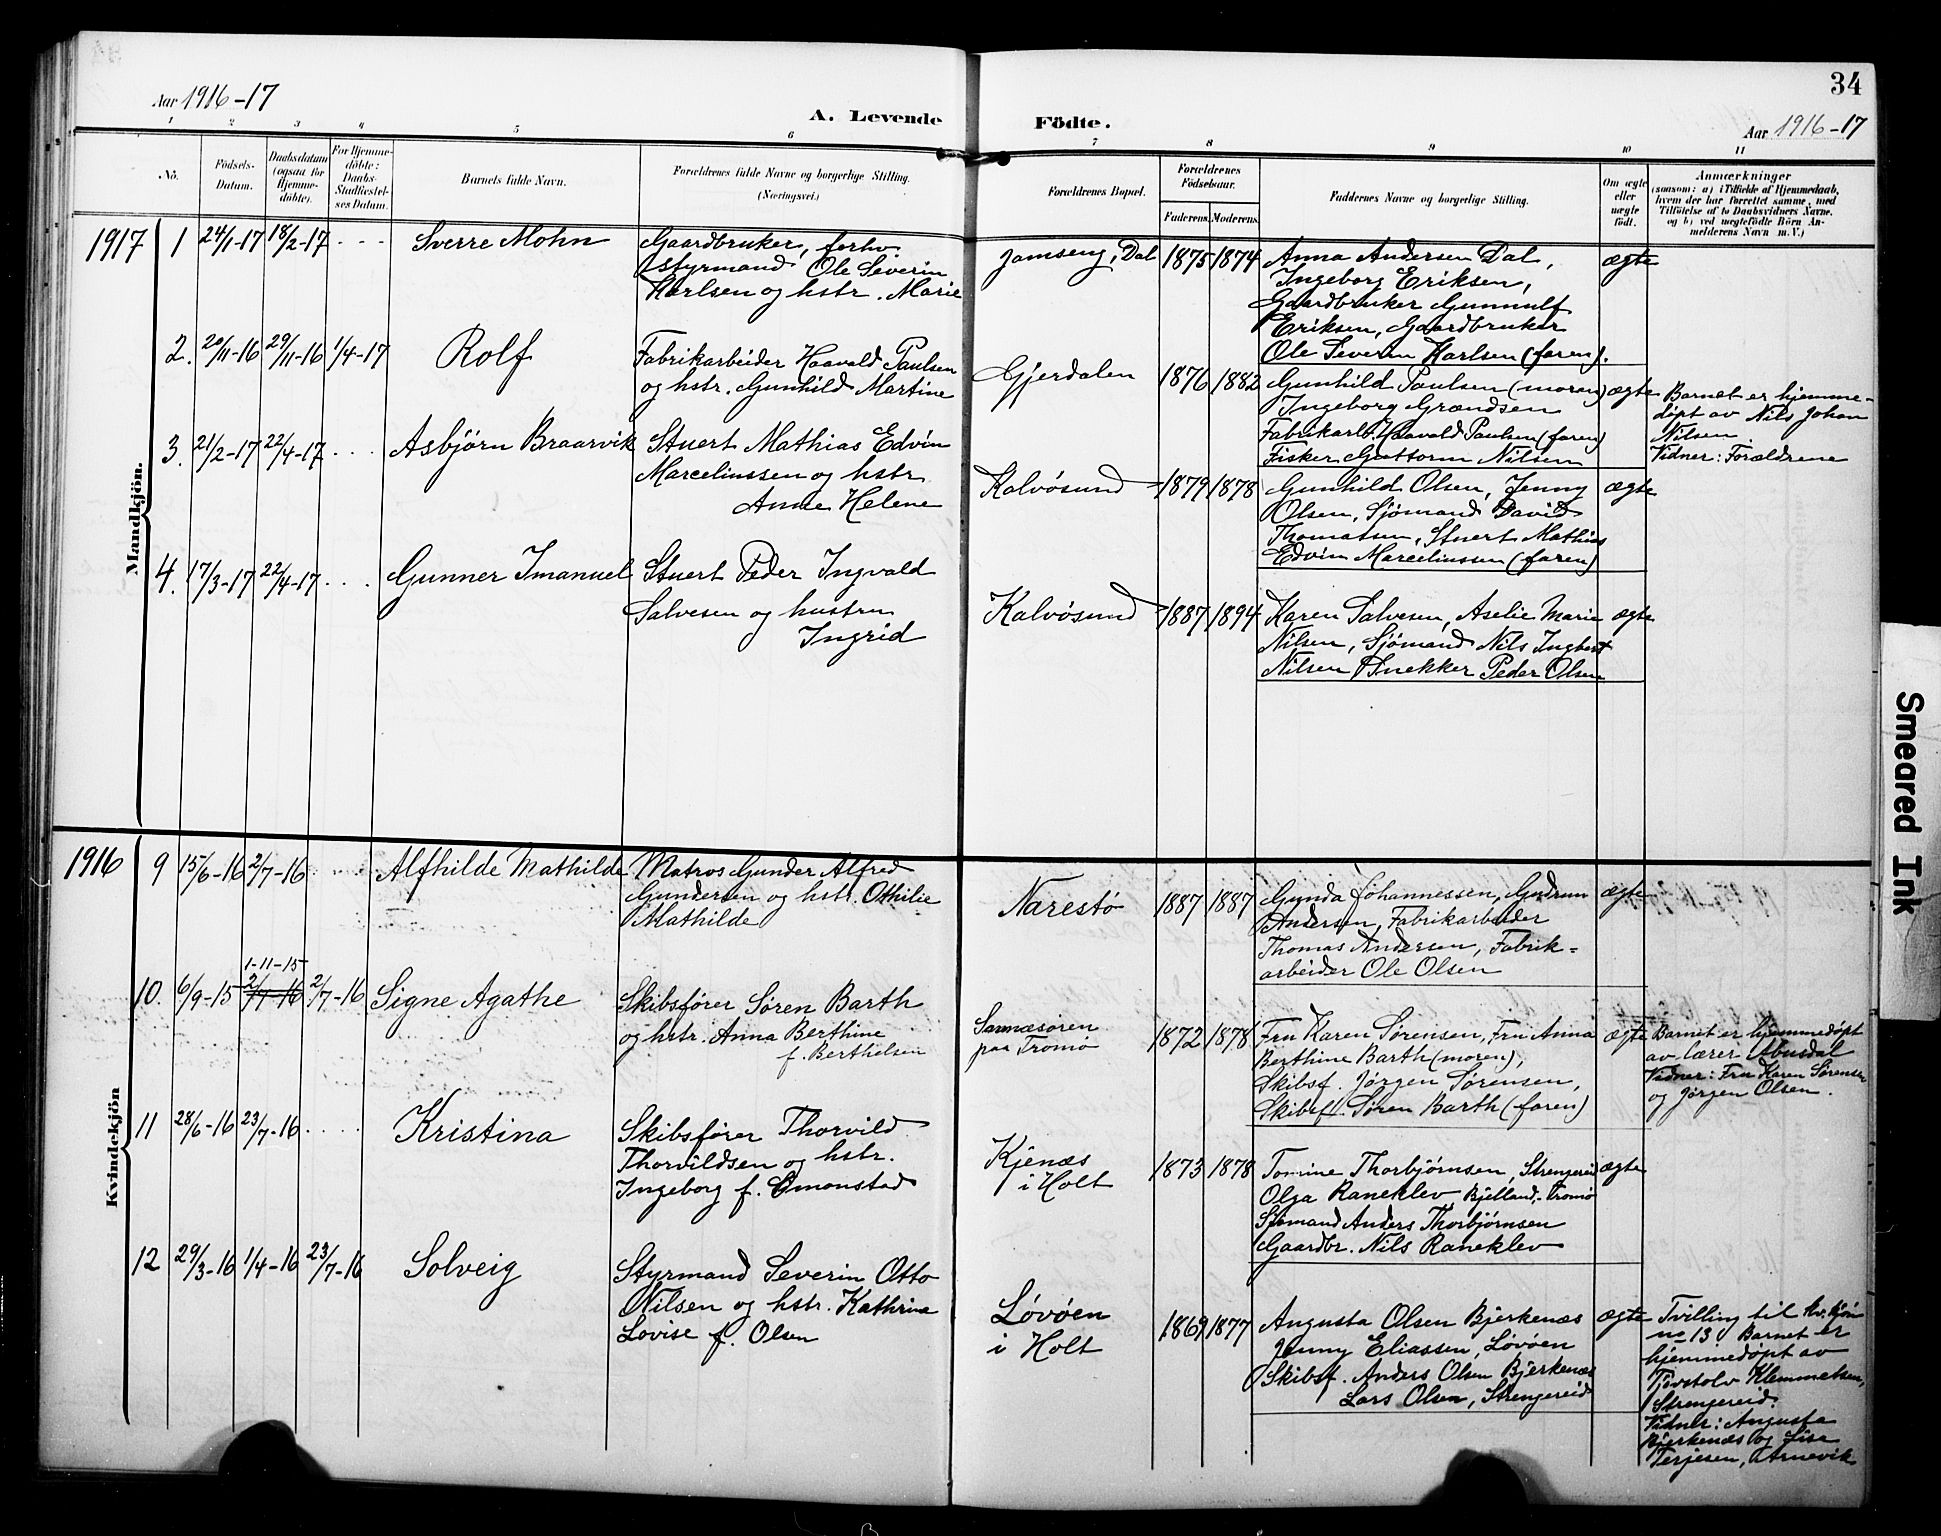 34
Aar 1916-17
A. Levende Födte.
Aar 1916-17
1 2 3 4 5 6 7 8 9 10 11
No.
Födsels-Datum.
Daabsdatum (ogsaa for Hjemme-döbte).
For Hjemme-döbte: Daabs-Stadfæstel-ses Datum.
Barnets fulde Navn.
Forældrenes fulde Navne og borgerlige Stilling. (Næringsvei.)
Forældrenes Bopæl.
Forældrenes Födselsaar.
Faderens. Moderens.
Faddernes Navne og borgerlige Stilling.
Om ægte eller uægte födt.
Anmærkninger
(saasom: a) i Tilfælde af Hjemmedaab,
hvem der har forrettet samme, med
Tilföielse af to Daabsvidners Navne,
og b) ved uægtefödte Börn An-
melderens Navn m. V.)
Mandkjön.
1917 1 24/1-17 18/2-17 - - - Sverre Mohn
Gaardbruker, forhv.
styrmand Ole Severin
Karlsen og hstr. Marie
Jomseng, Dal 1875 1874
Anna Andersen Dal,
Ingeborg Eriksen,
Gaardbruker Gunnulf
Eriksen, Gaardbruker
Ole Severin Karlsen (faren).
ægte
2. 20/11-16 29/11-16 1/4-17 Rolf
Fabrikarbeider Haavald Paulsen
og hstr. Gunhild Martine
Gjerdalen 1876 1882
Gunhild Paulsen (moren)
Ingeborg Grændsen
Fabrikarb. Haavald Paulsen (faren)
Fisker Guttorm Nilsen
ægte
Barnet er hjemme-
døpt av Nils Johan
Nilsen
Vidner: Forældrene
3. 21/2-17 22/4-17 . . . Asbjörn Braarvik
Stuert Mathias Edvin
Marceliussen og hstr.
Anne Helene
Kalvösund 1879 1878
Gunhild Olsen, Jenny
Olsen, Sjömand David
Thomassen, Stuert Mathias
Edvin Marceliussen (faren)
ægte
4. 17/3-17 22/4-17 . . . . Gunner Imanuel
Stuert Peder Ingvald
Salvesen og hustru
Ingrid
Kalvösund 1887 1894
Karen Salvesen, Aselie Marie
Nilsen, Sjömand Nils Ingbert
Nilsen Snekker Peder Olsen
ægte
Kvindekjön
1916 9 15/6-16 2/7-16 Alfhilde Mathilde
Matros Gunder Alfred
Gundersen og hstr. Othilie
Mathilde
Narestö 1887 1887
Gunda Johannessen, Gudrun
Andersen, Fabrikarbeider
Thomas Andersen, Fabrik-
arbeider Ole Olsen
ægte
1-11-15
10. 6/9-15 2/7-16 2/7-16 Signe Agathe
Skibsfører Søren Barth
og hstr. Anna Berthine
f. Berthelsen
Sannæsøren
paa Tromø
1872 1878
Fru Karen Sørensen, Fru Anna
Berthine Barth (moren),
Skibsf. Jørgen Sørensen,
Skibsf. Søren Barth (faren)
ægte
Barnet er hjemmedøpt
av lærer Ubusdal
Vidner: Fru Karen Sørensen
og Jørgen Olsen.
11 28/6-16 23/7-16 . . . . Kristina
Skibsfører Thorvild
Thorvildsen og hstr.
Ingeborg f. Omonstad
Kjenæs
i Holt
1873 1878
Tomine Thorbjørnsen, Strengereid
Olga Raneklev Bjelland, Tromø
Sjömand Anders Thorbjørnsen
Gaardbr. Nils Raneklev
ægte
12 29/3-16 1/4-16 23/7-16 Solveig
Styrmand Severin Otto
Nilsen og hstr. Kathrina
Lovise f. Olsen
Løvøen
i Holt
1869 1877
Augusta Olsen Bjerkenæs
Jenny Eliassen, Løvøen
Skibsf. Anders Olsen Bjerkenæs
Lars Olsen, Strengereid
ægte
Tvilling til kv.kjøn
no 13 Barnet er
hjemmedøpt av
Tjøstolv Klemmetsen,
Strengereid.
Vidner: Augusta
Bjerkenæs og Lise
Terjesen, Arnevik
Smeared Ink